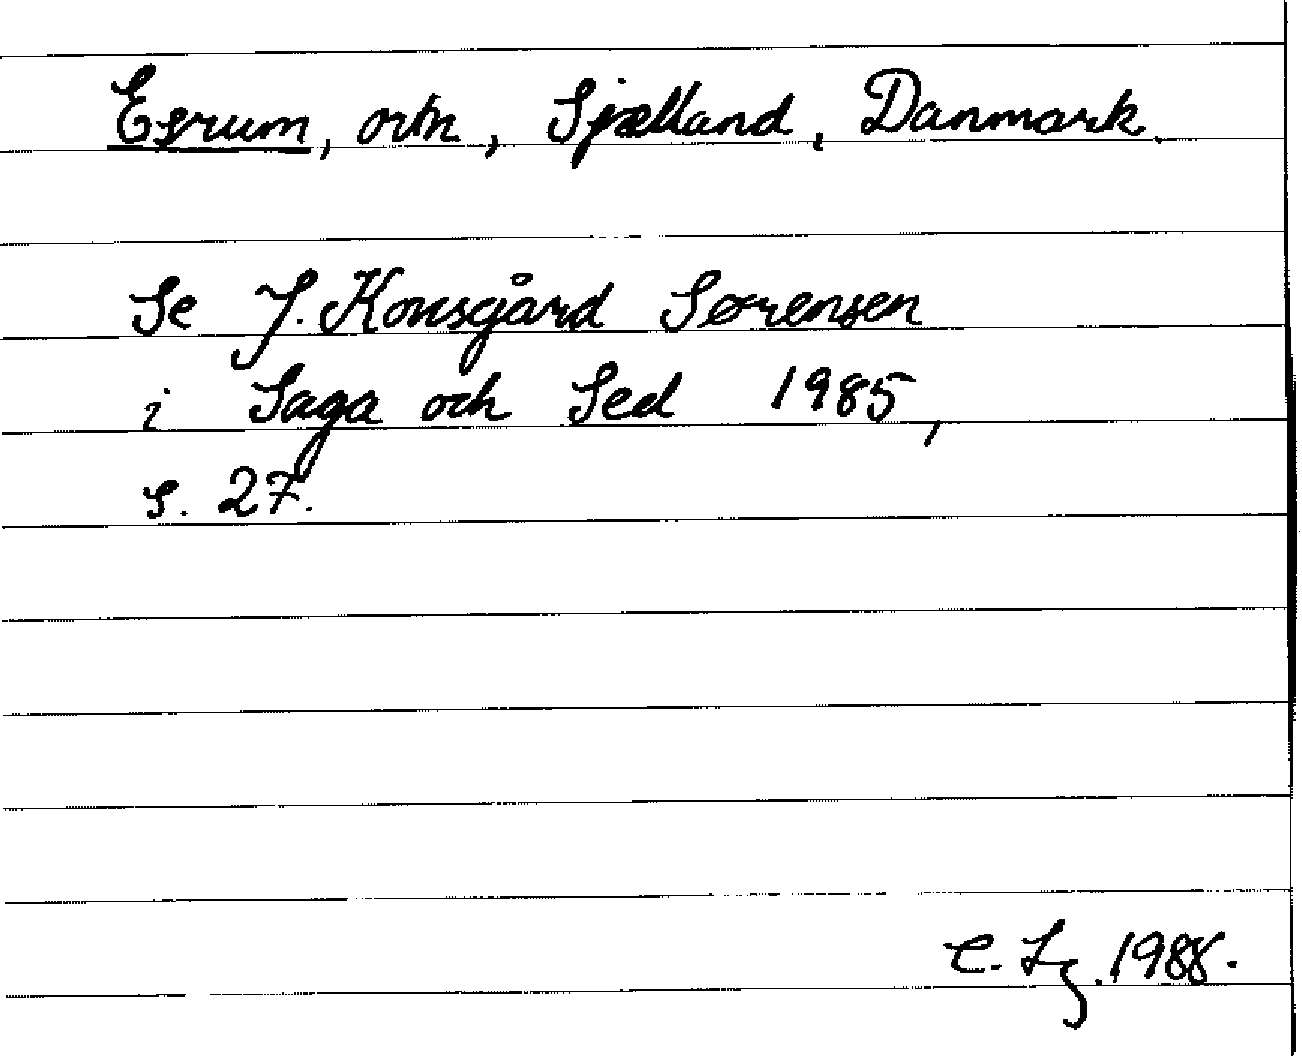 Esrum, ortn, Sjælland, Danmark.
Se J. Konsgård Sørensen
i Saga och Sed 1985,
s. 27.
C. Lg. 1988.